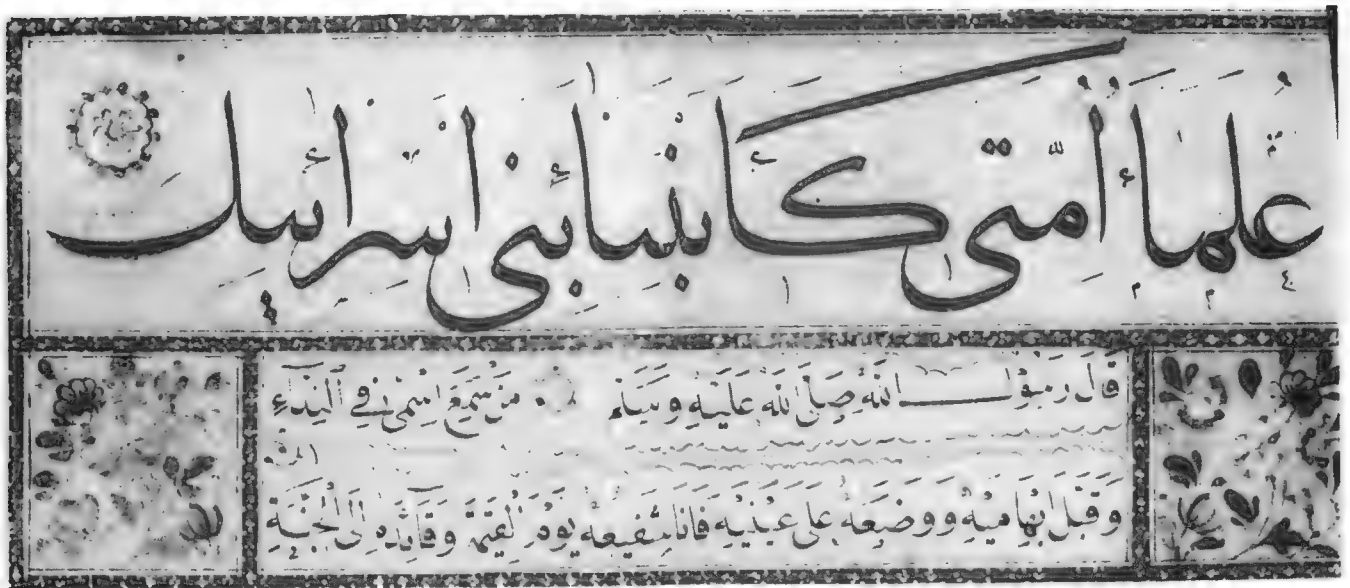 عُلَمَاءُ أُمَّتِى كَأَنْبِيَاءِ بَنِى إِسْرَائِيلَ
قَالَ رَسُولُ اللّٰهِ صَلَّى اللّٰهُ عَلَيْهِ وَسَلَّمَ مَنْ سَمِعَ اسْمِى فِى النِّدَاءِ
وَقَبَّلَ اِبْهَامَيْهِ وَوَضَعَهُ عَلَى عَيْنَيْهِ فَانَا شَفِيعُهُ يَوْمَ الْقِيٰمَةِ وَقَائِدُهُ اِلَى الْجَنَّةِ